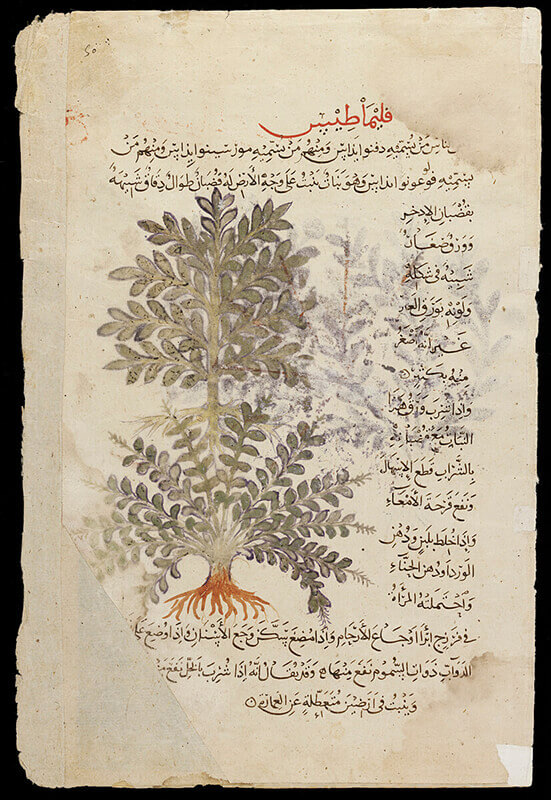 قليماطيس
الناس من يسميه دفنوايداس ومنهم من يسميه مورسينوايداس ومنهم من
يسميه فولوغونوايداس وهو نبات ينبت على وجه الأرض له قضبان طوال دقاق شبيهة
بقضبان الإذخر
وورق وضعاف
شبيه في شكله
ولونه بورق الغار
غير أنه أصغر
منه بكثير
وإذا شرب ورق هذا
النبات مع قضبانه
بالشراب قطع الإسهال
ونفع قرحة الأمعاء
وإذا خلط بلبن ودهن
الورد أو دهن الحناء
واحتملته المرأة
في فرزجة أبرأ أوجاع الأرحام وإذا مضغ سكن وجع الأسنان وإذا وضع على
الدواب ذوات السموم نفع منها وقد يقال أنه إذا شرب بالخل نفع من
وينبت في أرضين متعطلة عن العمارة